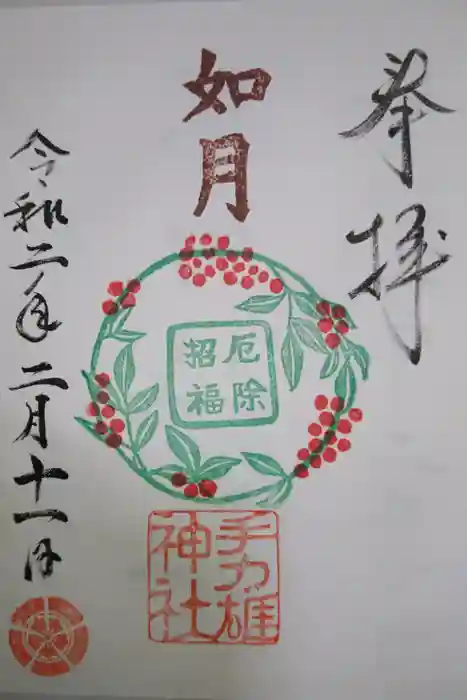 奉拝
如月
厄除
招福
手力雄
神社
令和二年二月十一日